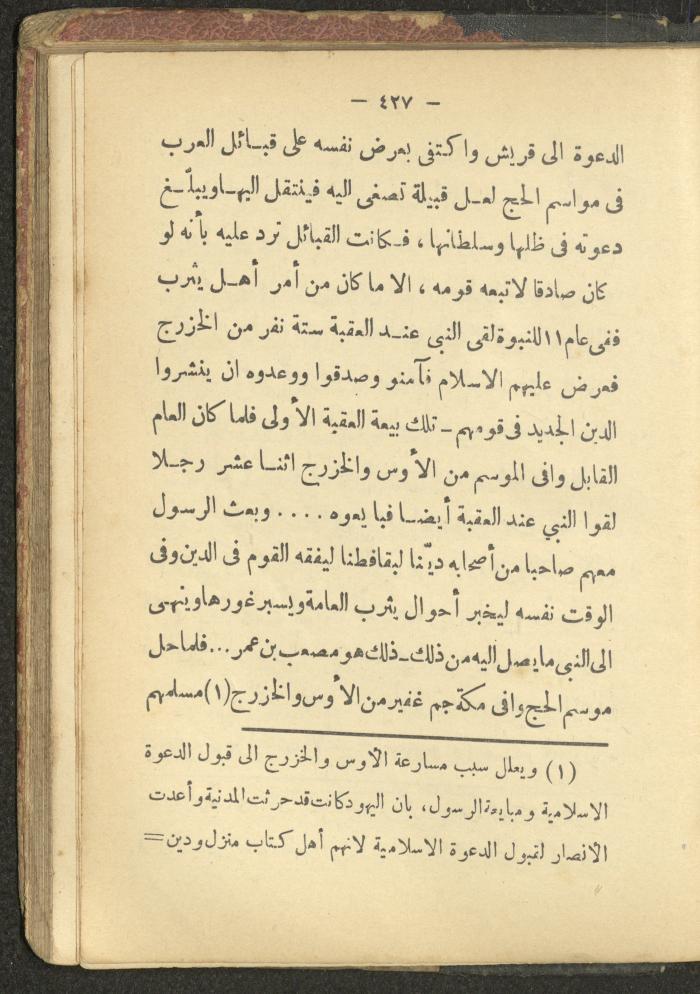 — ٤٢٧ —
الدعوة الى قريش واكتفى بعرض نفسه على قبائل العرب
فى مواسم الحج لعل قبيلة تصغى اليه فينتقل اليها ويبلّغ
دعوته فى ظلها وسلطانها ، فكانت القبائل ترد عليه بأنه لو
كان صادقا لاتبعه قومه ، الا ما كان من أمر أهل يثرب
ففى عام ١١ للنبوة لقى النبى عند العقبة ستة نفر من الخزرج
فعرض عليهم الاسلام فآمنو وصدقوا ووعدوه ان ينشروا
الدين الجديد فى قومهم ـ تلك بيعة العقبة الأولى فلما كان العام
القابل وافى الموسم من الأوس والخزرج اثنا عشر رجلا
لقوا النبي عند العقبة أيضا فبايعوه .... وبعث الرسول
معهم صاحبا من أصحابه ديّنا لبقا فطنا ليفقه القوم فى الدين وفى
الوقت نفسه ليخبر أحوال يثرب العامة ويسبر غورها وينهى
الى النبى ما يصل اليه من ذلك ـ ذلك هو مصعب بن عمر ... فلما حل
موسم الحج وافى مكة جم غفير من الأوس والخزرج (١) مسلمهم
(١) ويعلل سبب مسارعة الأوس والخزرج الى قبول الدعوة
الاسلامية ومبايعة الرسول، بان اليهود كانت قد حرثت المدنية وأعدت
الأنصار لقبول الدعوة الاسلامية لانهم أهل كتاب منزل ودين =